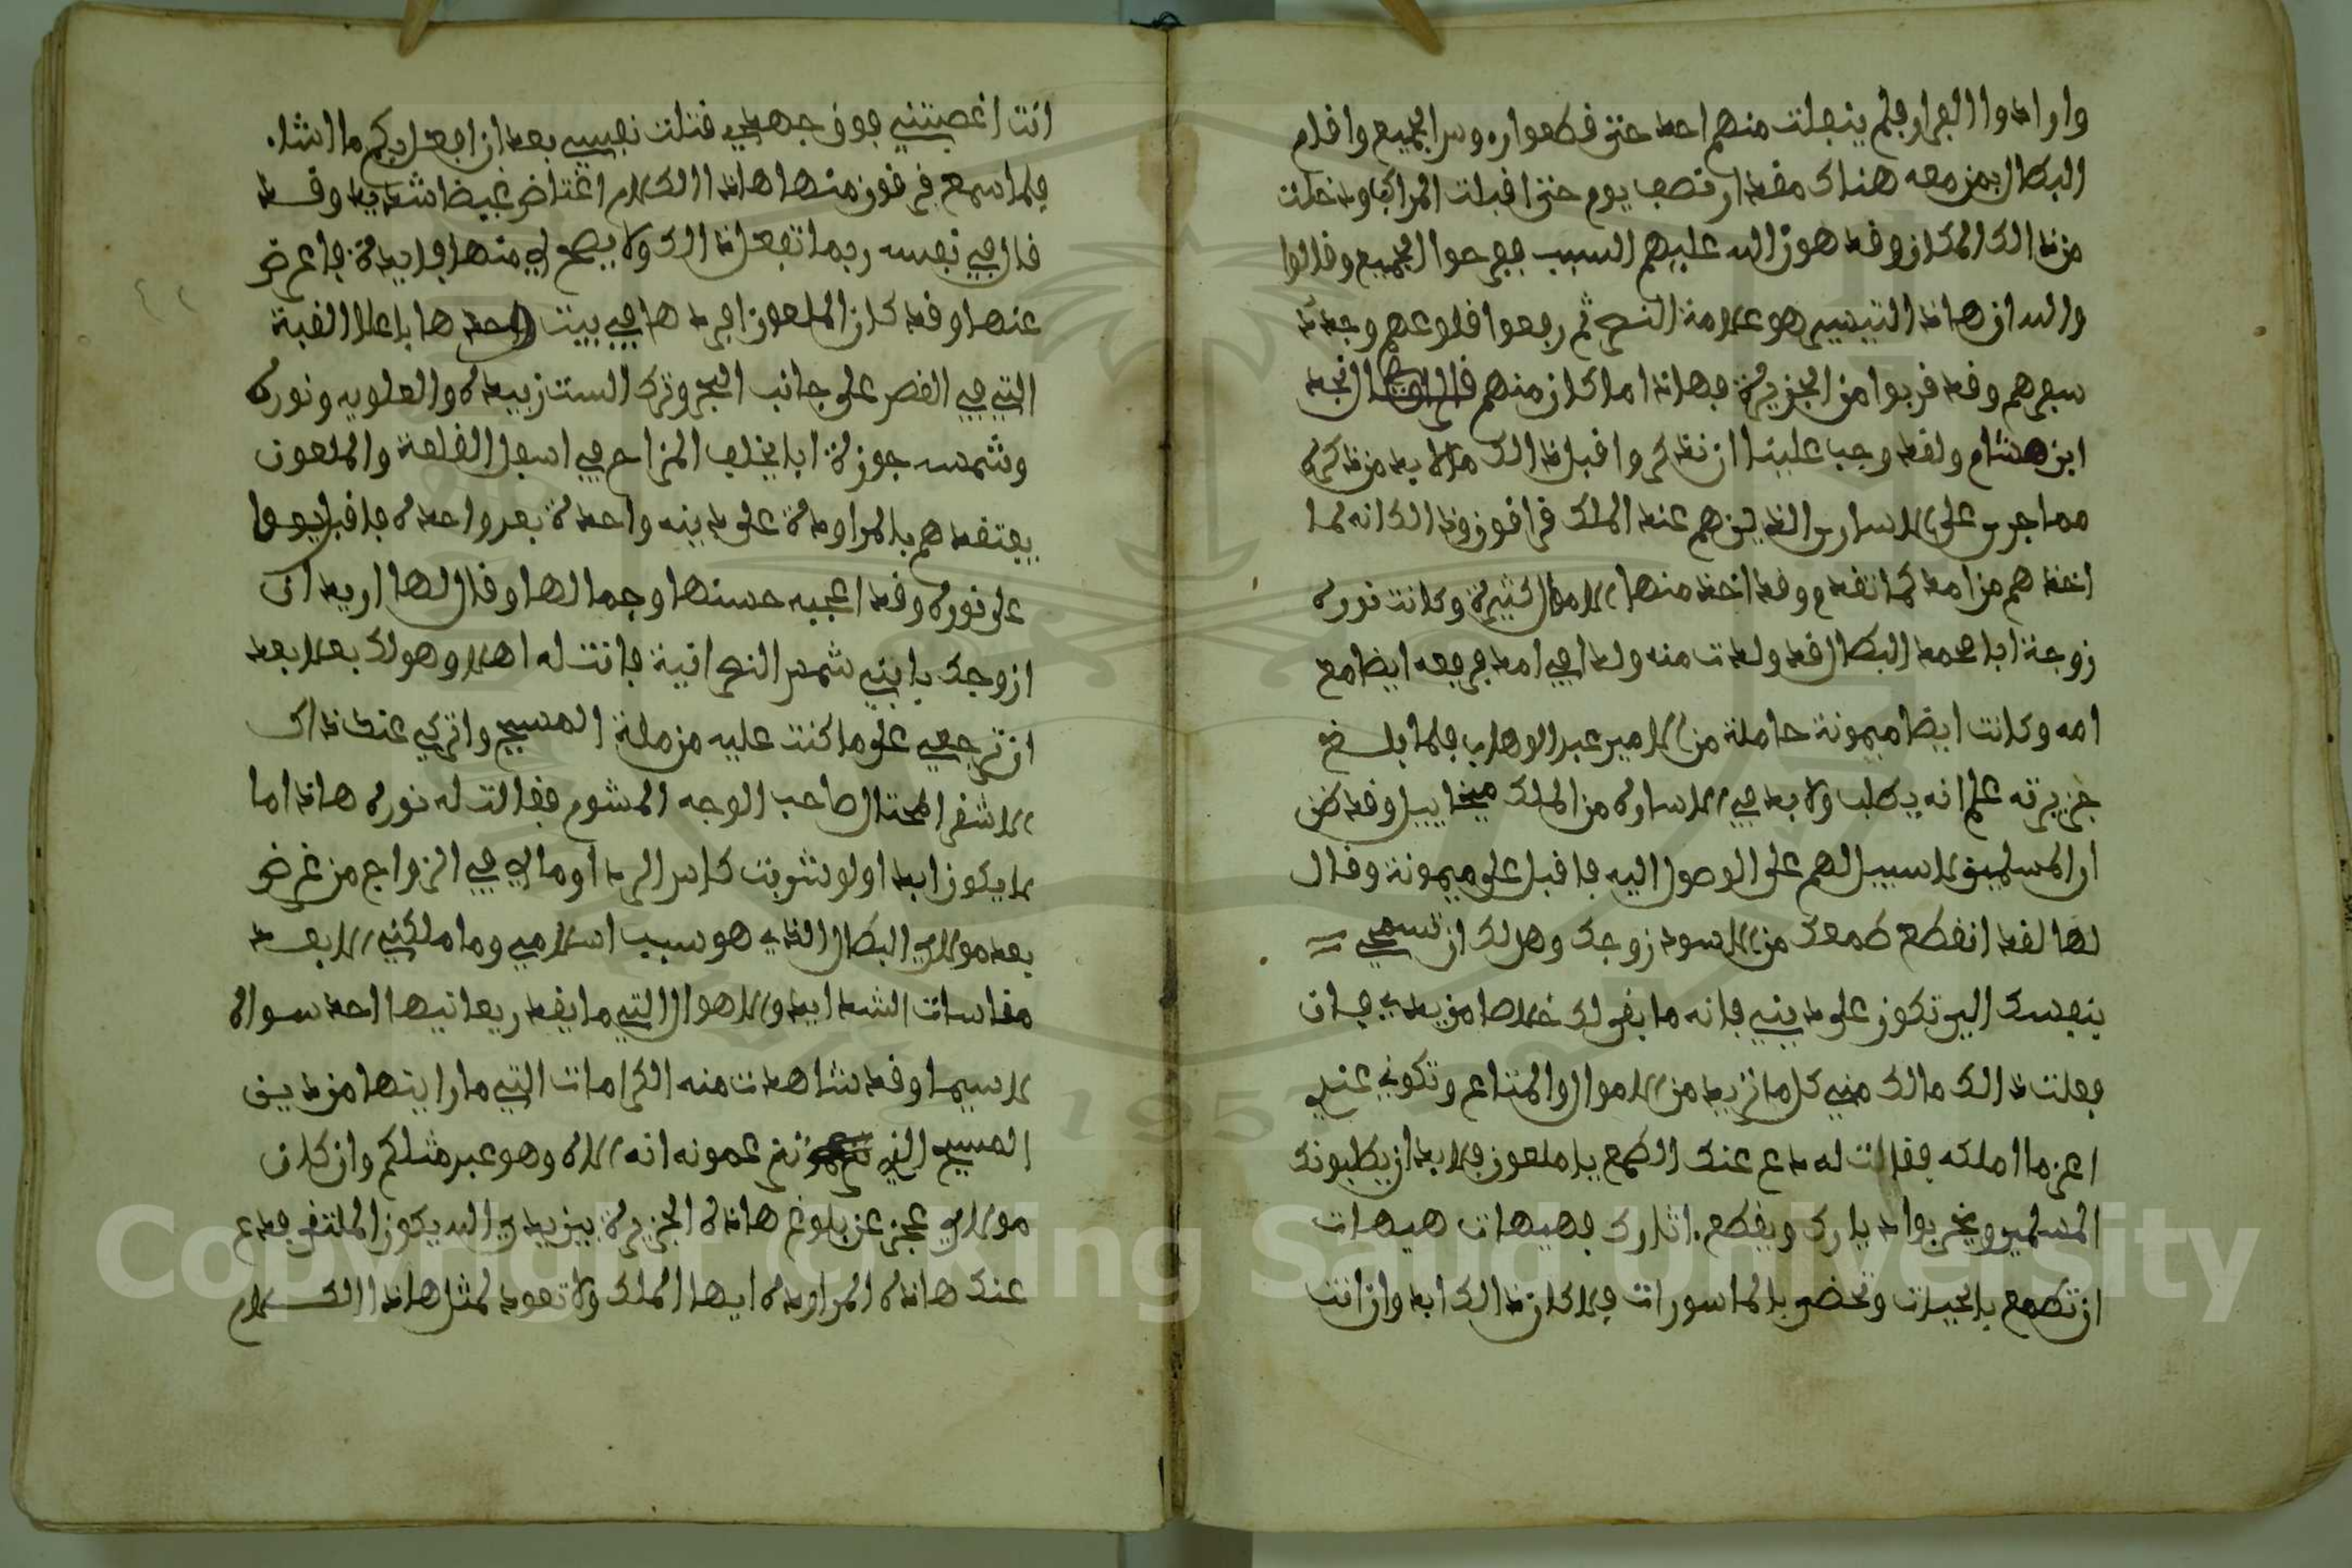 وارادوا الفرار فلم ينفلت منهم احد حتى قطعوا روس الجميع واقام
البطال بمن معه هناك مقدار نصف يوم حتى اقبلت المراكب ودخلت
من ذالك المكان وقد هون الله عليهم السبب ففرحوا الجميع وقالوا
والله ان هاذا التيسير هو علامة النصر ثم رفعوا قلوعهم وجد
سفرهم وقد قربوا من الجزيرة فهاذا ما كان منهم قال نجد
ابن هشام ولقد وجب علينا ان نذكر واقبل ذالك لا بد من ذكره
مما جرى على الاسارى الذين هم عند الملك قراقون وذالك انه لما
اخذهم من امد كما تقدم وقد اخذ منها الاموال كثيرة وكانت نوره
زوجة ابا محمد البطال قد ولدت منه ولد في امد فرفعه ايضا مع
امه وكانت ايضا ميمونة حاملة من الامير عبد الوهاب فلما بلغ
جزيرته علم انه يطلب ولا بد في الاساره من الملك ميخاييل وقد ظن
ان المسلمين لا سبيل لهم على الوصول اليه فاقبل على ميمونة وقال
لها لقد انقطع طمعك من الاسود زوجك وهل لك ان تسمحي
بنفسك الي وتكون على ديني فانه ما بقي لك خلاصا من يدي فان
فعلت ذالك مالك مني كل ما تريد من الاموال والمتاع وتكوني عندي
اعز ما املكه فقالت له دع عنك الطمع يا ملعون فلا بد ان يطلبونك
المسلمين ويخربوا ديارك ويقطع اثارك فهيهات هيهات
ان تطمع بالحيات وتحضى بالماسورات فلا كان ذالك ابدا وان انت
انت اغصبتني فوق جهدي قتلت نفسي بعد ان افعل بكم ما اشا
فلما سمع قرقون منها هاذا الكلام اغتاض غيضا شديد وقد
قال في نفسه ربما تفعل ذالك ولا يصح لي منها فايدة فاعرض
عنها وقد كان الملعون افردها في بيت وحدها باعلا القبة
التي في القصر على جانب البحر وترك الست زبيده والعلويه ونوره
وشمسه جوزة ابا يخلف المزاح في اسفل القلعة والملعون
يعتقدهم بالمراودة على دينه واحدة بعد واحده فاقبل يوما
على نوره وقد اعجبه حسنها وجمالها وقال لها اريد ان
ازوجك بابني شمس النصرانية فانت له اهلا وهو لك بعلا بعد
ان ترجعي على ما كنت عليه من ملة المسيح واتركي عنك ذاك
الاشقر المحتال صاحب الوجه المشوم فقالت له نوره هاذا ما
لا يكون ابدا ولو شربت كاس الردا وما لي في الزواج من غرض
بعد مولاي البطال الذي هو سبب اسلامي وما ملكني الا بعد
مقاسات الشدايد والاهوال التي ما يقدر يعانيها احد سواه
لا سيما وقد شاهدت منه الكرامات التي ما رايتها من دين
المسيح الذي تزعمونه انه الاه وهو عبد مثلكم وان كان
مولاي عجز عن بلوغ هاذه الجزيرة بين يدي الله يكون الملتقى فدع
عنك هاذه المراوده ايها الملك ولا تعود لمثل هاذا الكلام
Copyright © King Saud University
1957